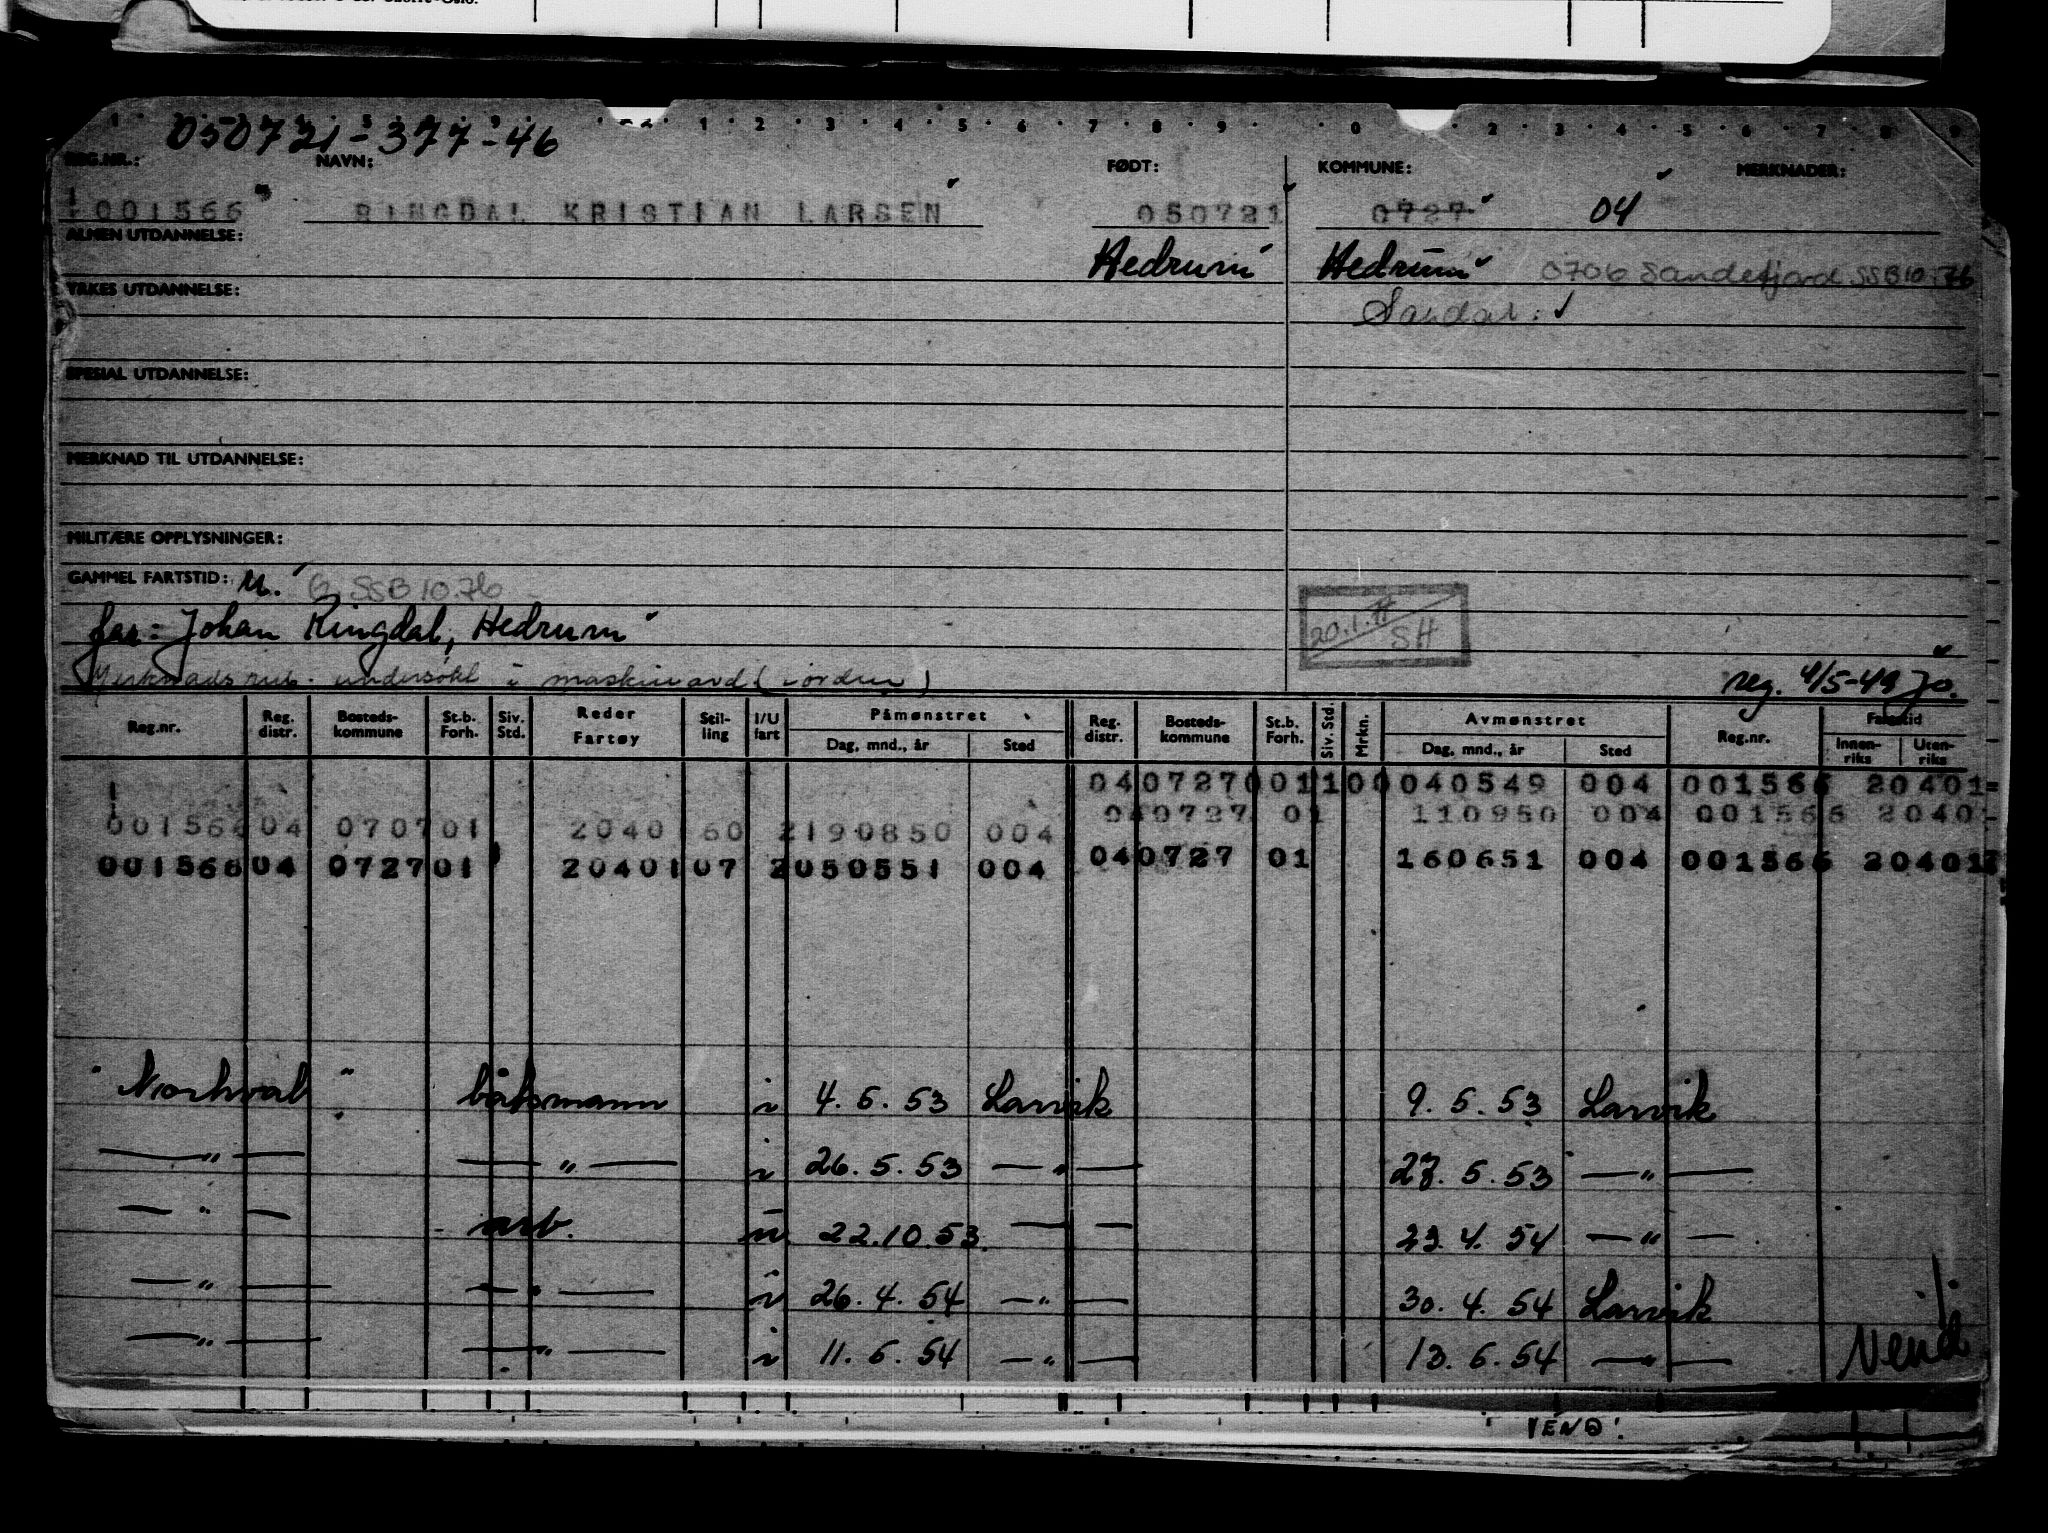 050721-377-46
1 2 3 4 5 6 7 8 9 0 2 3 4 5 6 7 8 9
REG.NR.: NAVN: FØDT: KOMMUNE: MERKNADER:
001566 RINGDAL KRISTIAN LARSEN 050721 0727 04
ALMEN UTDANNELSE:
Hedrum Hedrum 0706 Sandefjord SSB10.76
YRKES UTDANNELSE:
Sandar.
SPESIAL UTDANNELSE:
MERKNAD TIL UTDANNELSE:
MILITÆRE OPPLYSNINGER:
GAMMEL FARTSTID: U. 6 SSB 10.76
far = Johan Ringdal, Hedrum
20.1. SH
Merknads rub. undersøkt i maskinavd (iorden)
reg. 4/5-49 Jo.
Reg.nr. Reg. distr. Bosteds-kommune St.b. Forh. Siv. Std. Reder Fartøy Stil-ling I/U fart Påmønstret Dag, mnd., år Sted Reg. distr. Bosteds-kommune St.b. Forh. Siv. Std. Mrkn. Avmønstret Dag, mnd., år Sted Reg.nr. Fartstid Innen-riks Uten-riks
04 0727 001 1 00 040549 004 001566 20401
001566 04 0707 01 2040 60 2 190850 004 040727 01 110950 004 001566 20401
001566 04 0727 01 20401 07 2 050551 004 040727 01 160651 004 001566 20401
" Norhval " båtsmann i 4. 5. 53 Larvik 9. 5. 53 Larvik
— " — — " — i 26. 5. 53 — " — 27. 5. 53 — " —
— " — arb. u 22.10.53. — — 23. 4. 54 — " —
— " — — " — i 26. 4. 54 — " — 30. 4. 54 Larvik
— " — — " — i 11. 6. 54 — " — 13. 6. 54 — " —
Vend!
VEND!